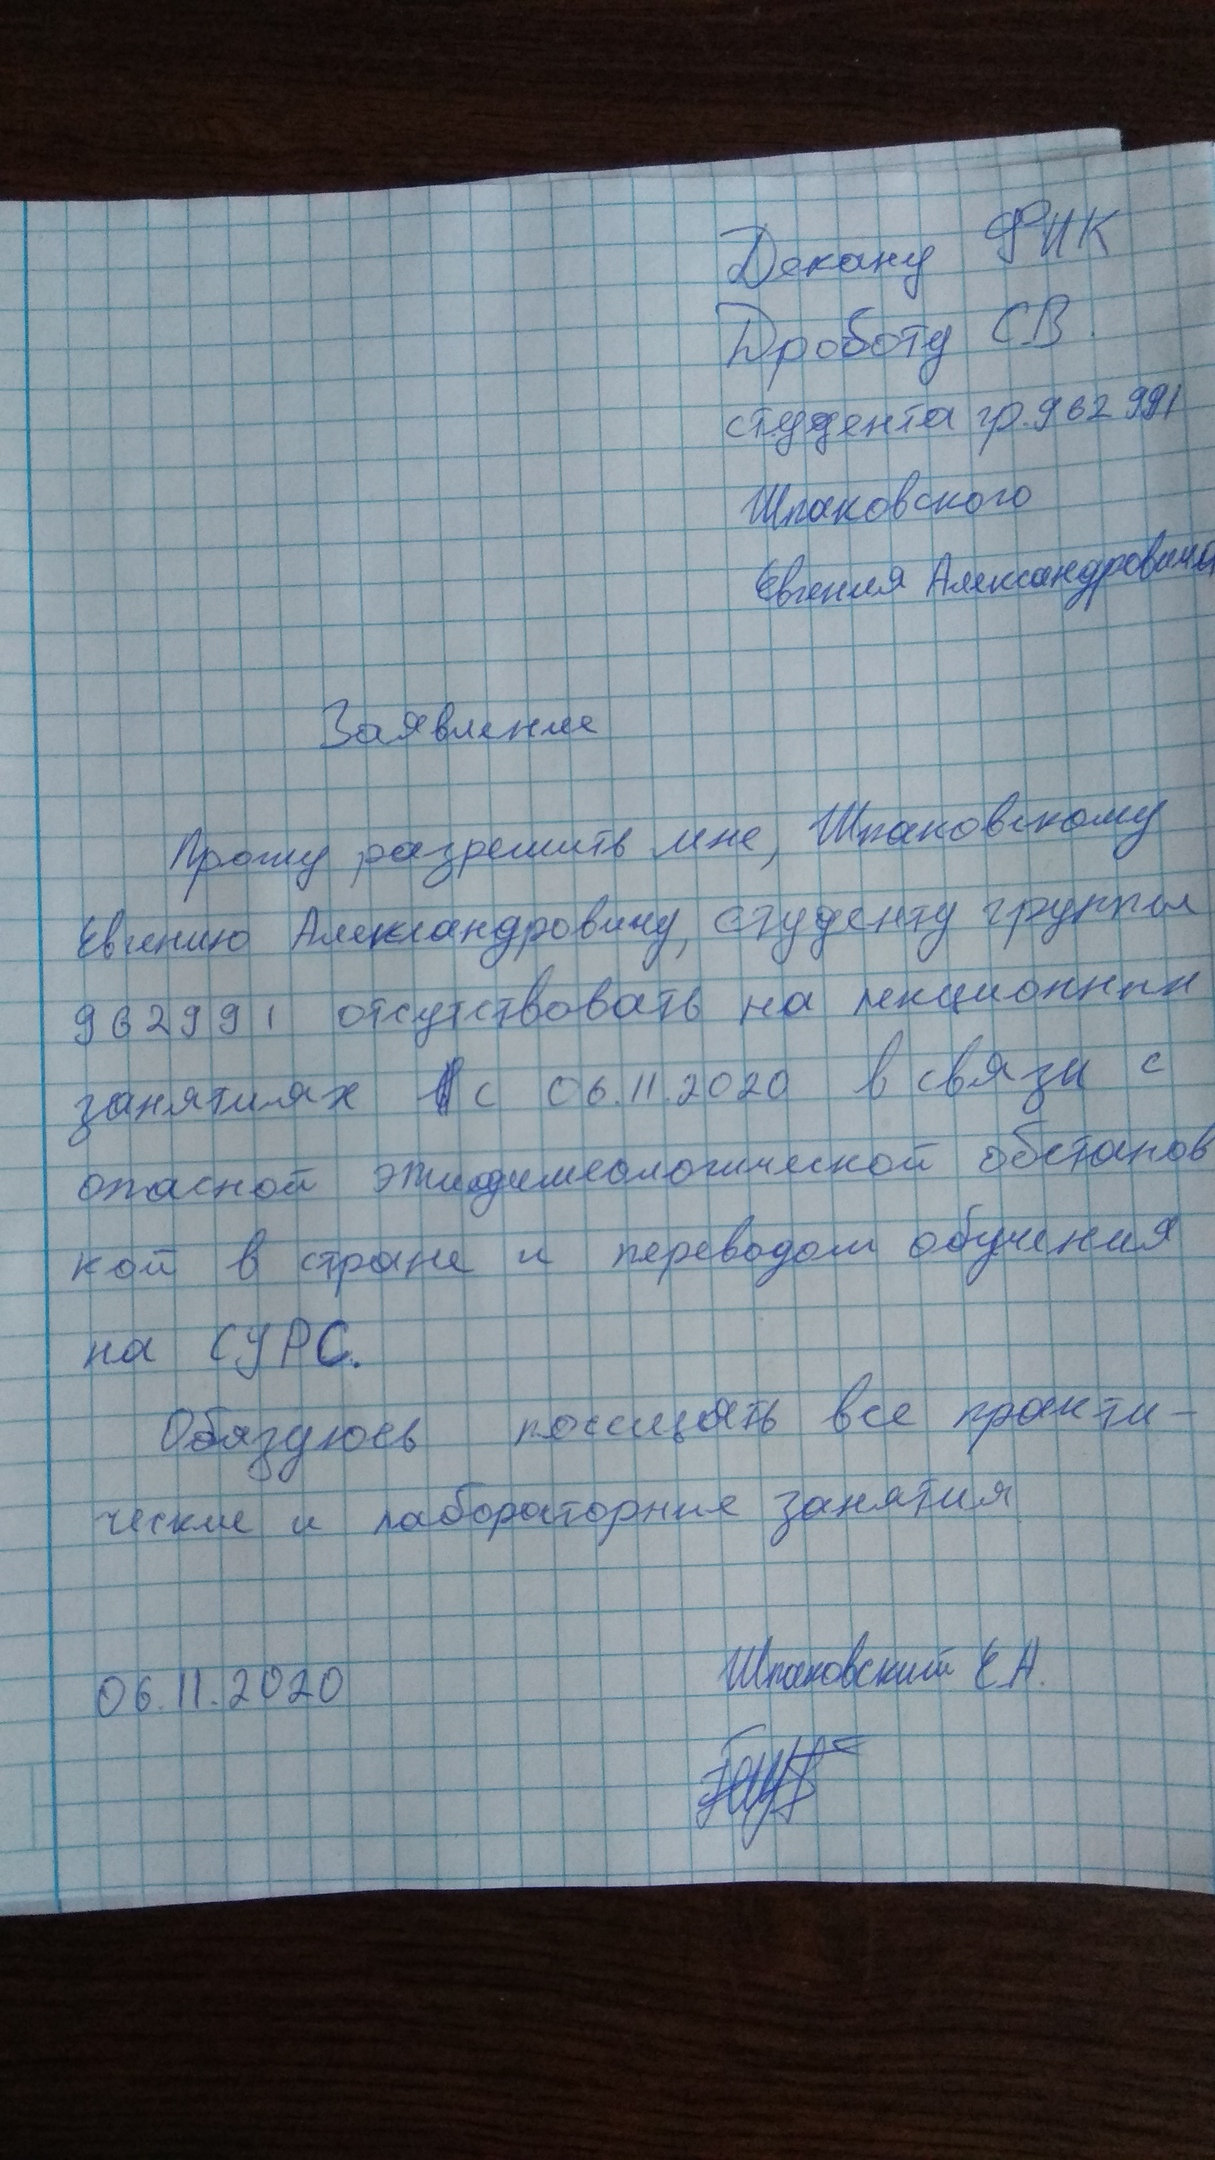 Декану ФИК
Дроботу СВ.
студента гр.962991
Шпаковского
Евгения Александровича
Заявление
Прошу разрешить мне, Шпаковскому
Евгению Александровичу, студенту группы
962991 отсутствовать на лекционных
занятиях с 06.11.2020 в связи с
опасной эпидимеологической обстанов
кой в стране и переводом обучения
на СУРС.
Обязуюсь посещать все практи-
ческие и лабораторные занятия
06.11.2020
Шпаковский Е А.